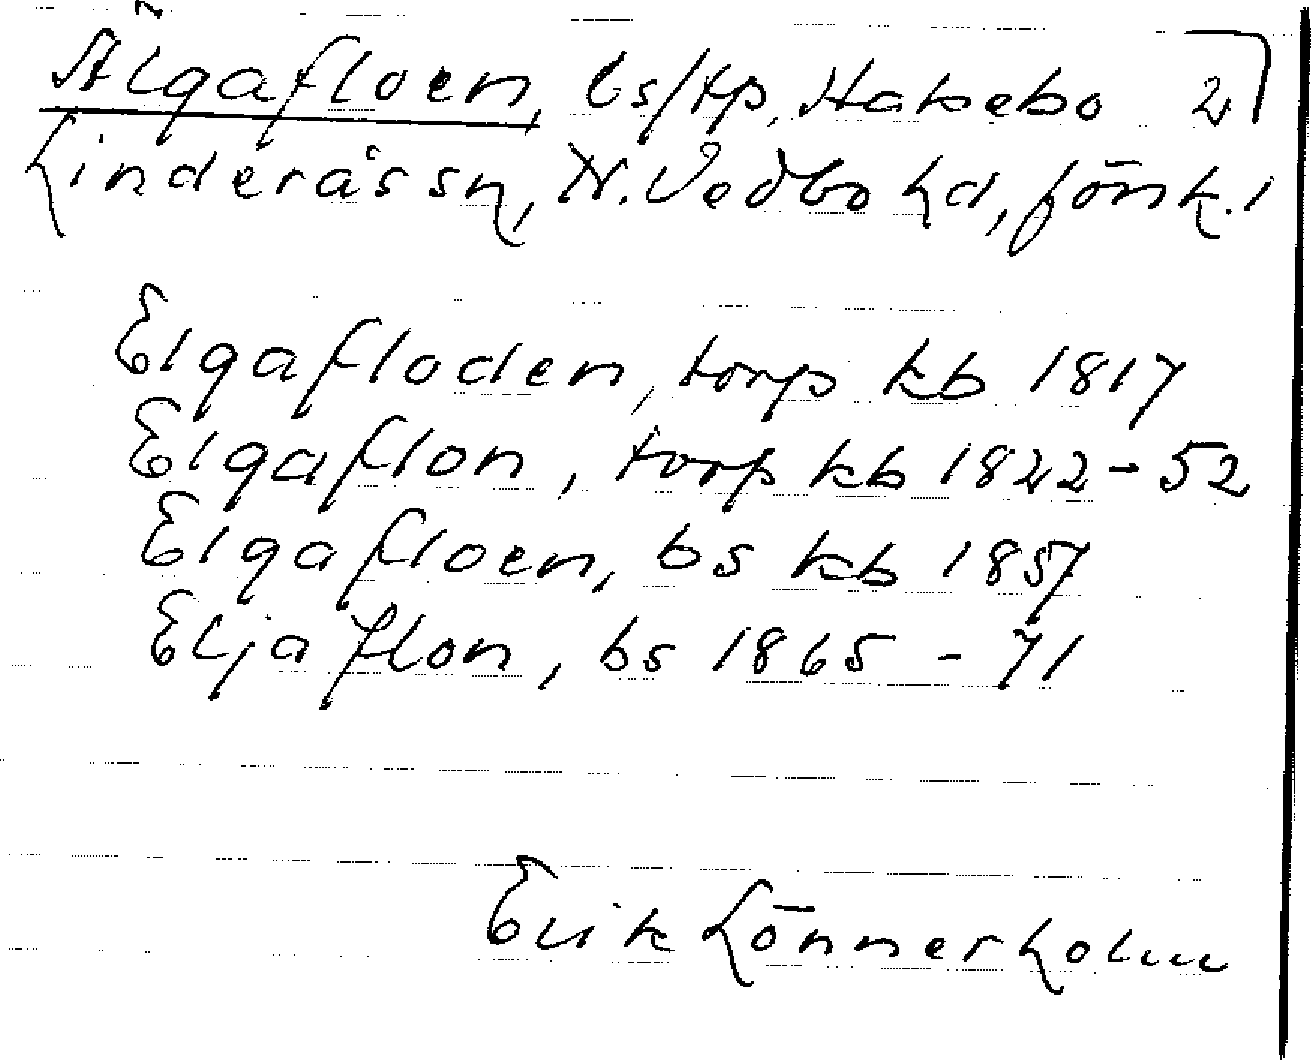 Älgafloen, bs/tp, Hakebo 2
Linderås sn, N. Vedbo hd, Jönk. l
Elgafloden, torp kb 1817
Elgaflon, torp kb 1822-52
Elgafloen, bs kb 1857
Eljaflon, bs 1865-71
Erik Lönnerholm